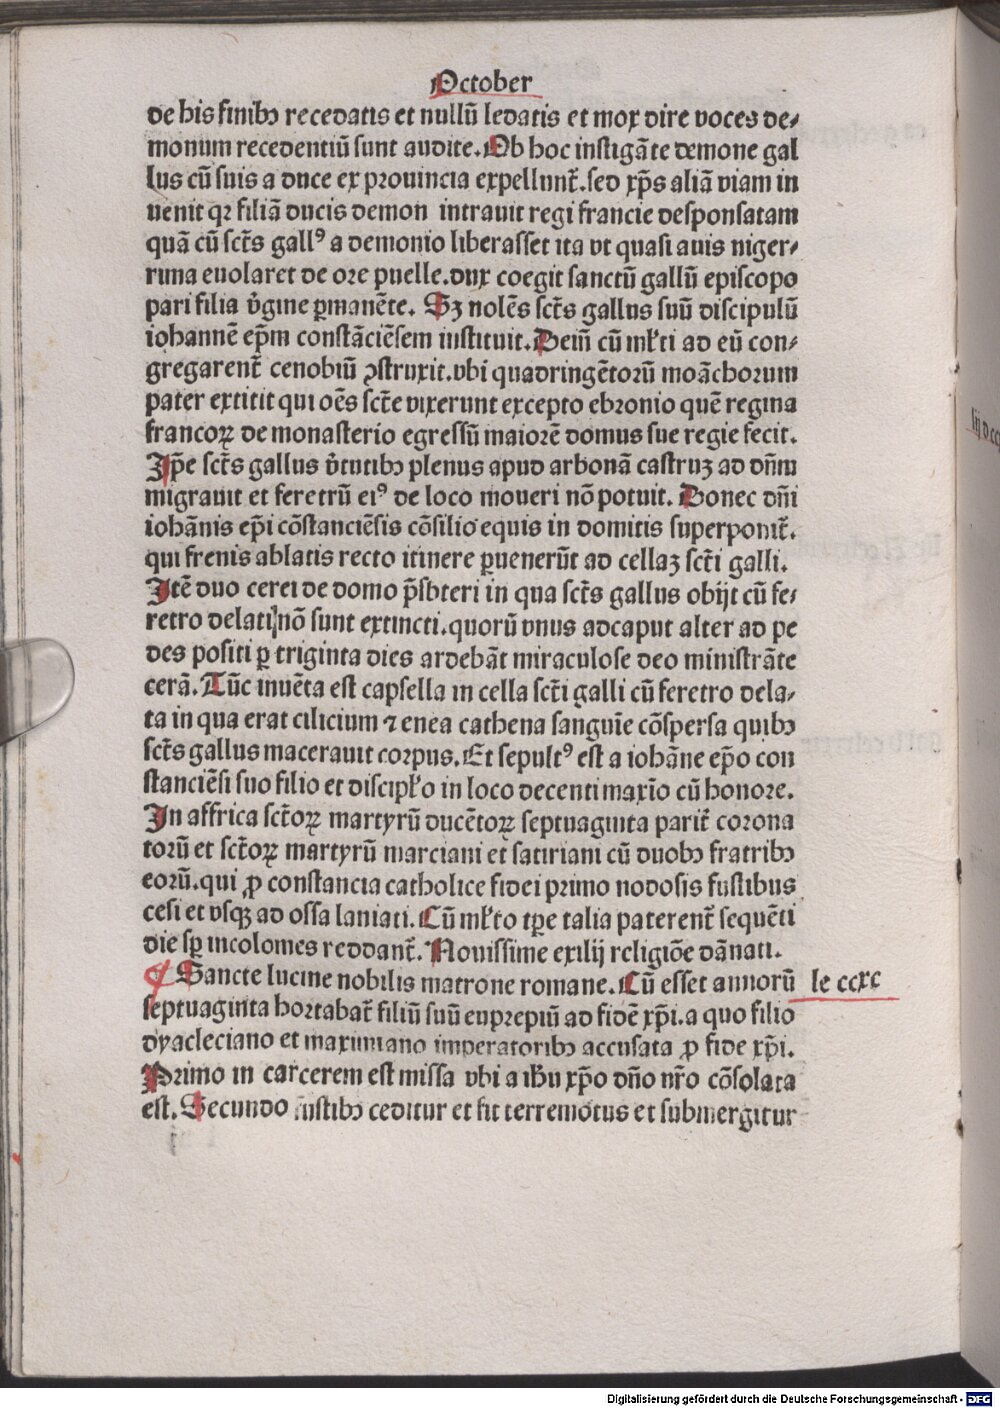 October
de his finibꝫ recedatis et nullū ledatis et mox dire voces de⸗
monum recedentiū sunt audite. Ob hoc instigāte demone gal
lus cū suis a duce ex prouincia expellunt̄. sed xp̄s aliā viam in
uenit qꝛ filiā ducis demon intrauit regi francie desponsatam
quā cū sct̄s gallꝰ a demonio liberasset ita vt quasi auis niger⸗
rima euolaret de ore puelle. dux coegit sanctū gallū episcopo
pari filia v̓gine ꝑmanēte. Sꝫ nolēs sct̄s gallus suū discipulū
iohannē ep̄m constāciēsem instituit. Deiñ cū ml̓ti ad eū con⸗
gregarent̄ cenobiū ꝯstruxit. vbi quadringētorū moāchorum
pater extitit qui oēs sct̄e vixerunt excepto ebronio quē regina
francoꝝ de monasterio egressū maiorē domus sue regie fecit.
Ip̄e sct̄s gallus v̓tutibꝫ plenus apud arbonā castruꝫ ad dn̄m
migrauit et feretrū eiꝰ de loco moueri nō potuit. Donec dn̄i
iohānis ep̄i cōstanciēsis cōsilio equis in domitis superponit̄.
qui frenis ablatis recto itinere ꝑuenerūt ad cellaꝫ sct̄i galli.
Itē duo cerei de domo p̄sbteri in qua sct̄s gallus obijt cū fe⸗
retro delati nō sunt extincti. quorū vnus adcaput alter ad pe
des positi ꝑ triginta dies ardebāt miraculose deo ministrāte
cerā. Tūc inuēta est capsella in cella sct̄i galli cū feretro dela⸗
ta in qua erat cilicium ⁊ enea cathena sanguīe cōspersa quibꝫ
sct̄s gallus macerauit corpus. Et sepultꝰ est a iohāne ep̄o con
stanciēsi suo filio et discipl̓o in loco decenti maxīo cū honore.
In affrica sct̄oꝝ martyrū ducētoꝝ septuaginta parit̄ corona
torū et sct̄oꝝ martyrū marciani et satiriani cū duobꝫ fratribꝫ
eorū. qui ꝓ constancia catholice fidei primo nodosis fustibus
cesi et vsqꝫ ad ossa laniati. Cū ml̓to tp̄e talia paterent̄ sequēti
die sp̄ incolomes reddant̄. Nouissime exilij religiōe dānati.
¶ Sancte lucine nobilis matrone romane. Cū esset annorū le ccxc
septuaginta hortabat̄ filiū suū euprepiū ad fidē xp̄i. a quo filio
dyacleciano et maximiano imperatoribꝫ accusata ꝓ fide xp̄i.
Primo in carcerem est missa vbi a ih̄u xp̄o dn̄o nr̄o cōsolata
est. Secundo fustibꝫ ceditur et fit terremotus et submergitur
Digitalisierung gefördert durch die Deutsche Forschungsgemeinschaft - DFG